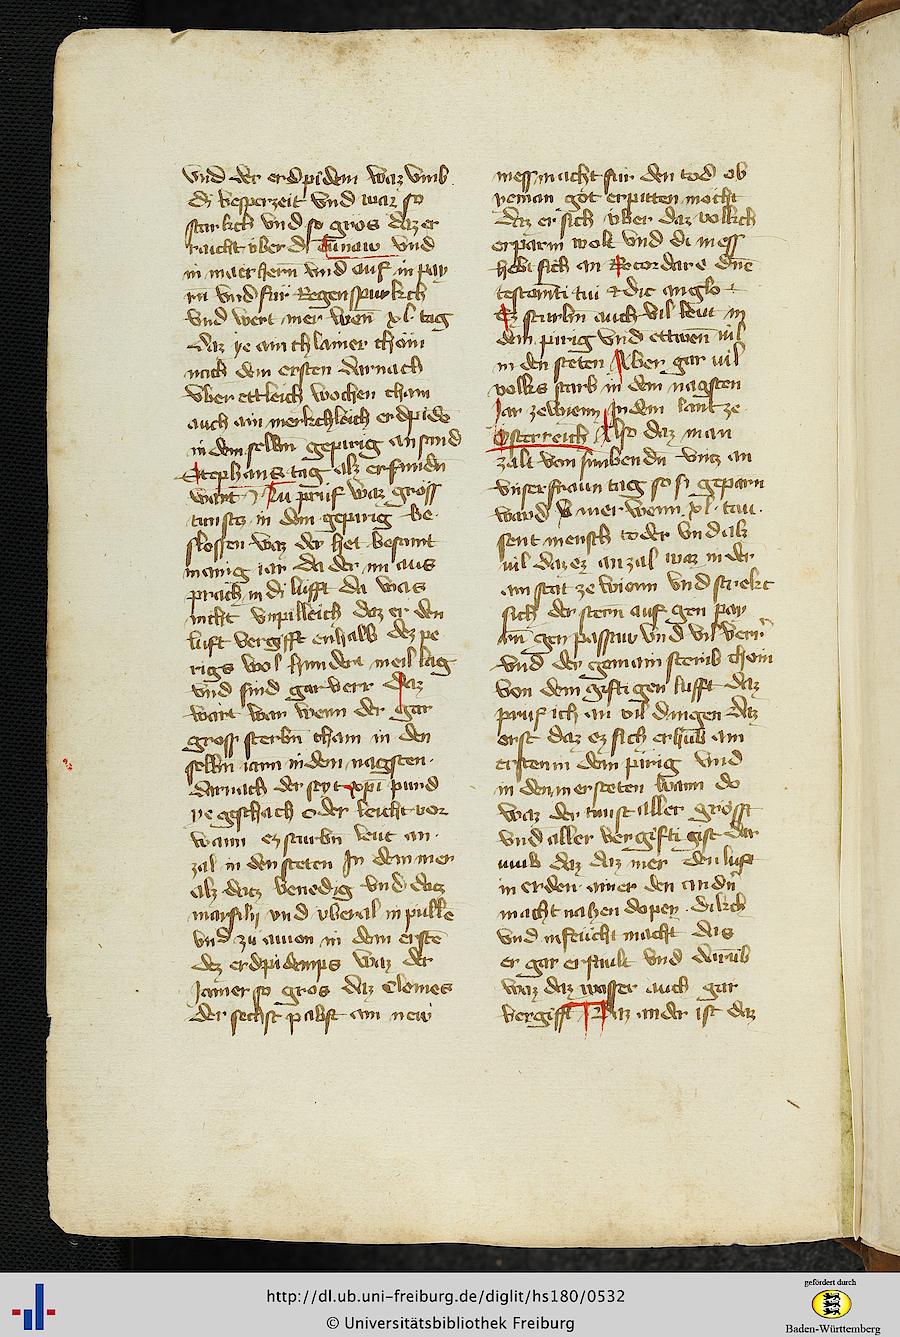 vnd der erdpidem waz vmb
di vesperzeit vnd waz so
starkch vnd so gros daz er
raicht vber di Tunaw vnd
in märhern vnd auf in pay
rn vnd für Regenspurkch
vnd wert mer wen xl tag
daz ye ain chlainer chöm
nach dem ersten darnach
vber ettleich wochen cham
auch ain merkchleich erdpide
in dem selben gepirig an sand
Stephans tag alz er fundn
wart Nu prüf waz gross
tunsts in dem gepirig be
slossen waz der het besamt
manig iar da der nu aus
prach in di lüfft da was
nicht vnpilleich daz er den
luft vergifft enhalb dez pe
rigs wol hundert meil lag
vnd sind gar verr Daz
wart war wenn der gar
gross sterbn cham in den
selbn iarn in den nagsten
darnach der seyt xpi purd
ye geschach oder leicht vor
wann ez sturbn leut an
zal in den steten In dem mer
alz datz Venedig vnd datz
marsilij vnd vberal in pülle
vnd zu auion in dem erste
dez erdpidemps waz der
Jamer so gros daz Clemes
der sechst pabst ain new
mess macht für den tod ob
yeman got erpitten möcht
daz er sich vber daz volkch
erparm wolt vnd di mess
hebt sich an Recordare dne
testamti tui & dic anglo
Ez sturbn auch vil leut in
dem pirig vnd ettwen vil
in den steten Aber gar vil
volks starb in dem nagsten
Jar ze wienn In dem lant ze
Osterreich Also daz man
zalt von sunbendn vntz an
vnser fraun tag so si geparn
ward mer wenn xl tau
sent mensch toder vnd alz
vil daz ez an zal waz in der
ain stat ze wienn vnd strekt
sich der sterb auf gen pay
rn gen passaw vnd vil verr
vnd der gemain sterib chom
von dem giftigen lufft daz
prüf ich an vil dingen Daz
erst daz ez sich erhub am
ersten in dem pirig vnd
in den mersteten wann do
waz der tunst aller grösst
vnd aller vergifftigist dar
umb daz daz mer den luft
in erden ainer den andn
macht nahen dopey dikch
vnd infeucht macht das
er gar erfault vnd darüb
waz daz wasser auch gar
vergifft Daz ander ist daz
http://dl.ub.uni-freiburg.de/diglit/hs180/0532
© Universitätsbibliothek Freiburg
gefördert durch
Baden-Württemberg